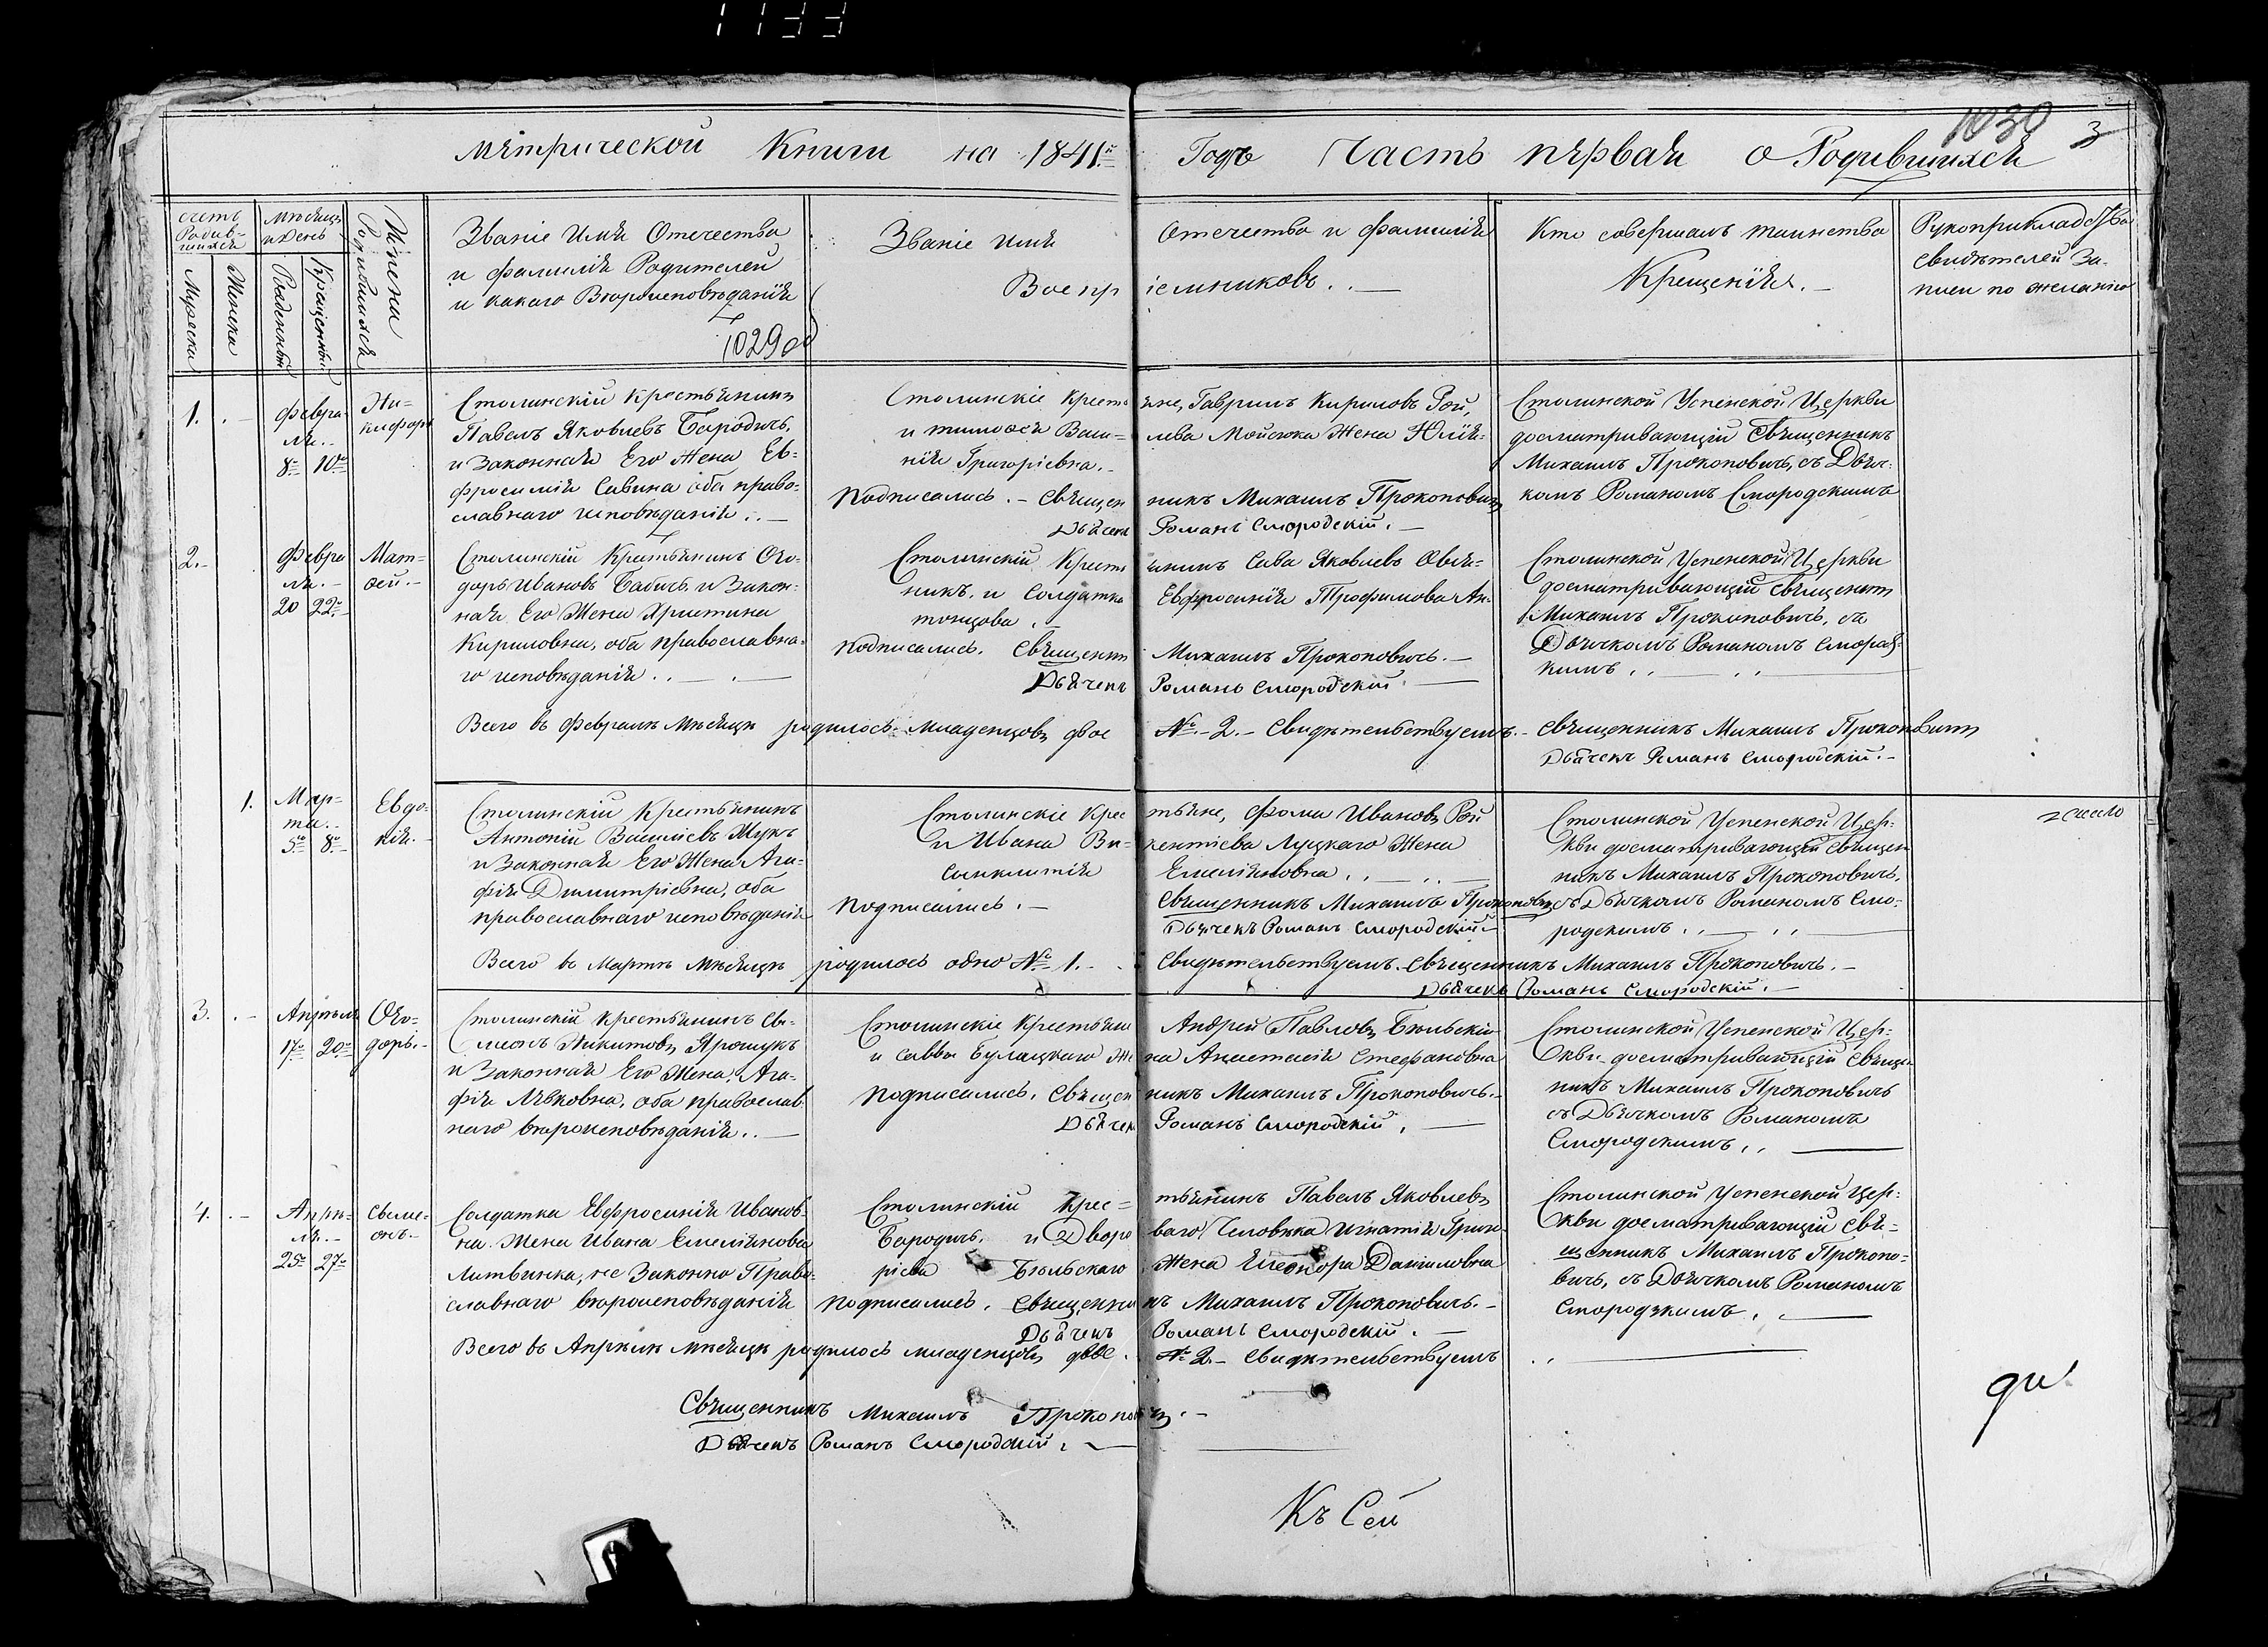 1133
1030 3
Мѣтрической Книги на 1841й Годъ Часть пѣрвая о Родившихся
счетъ Родив-
шихся
Мужеска
Женска
Мѣсяцъ
и День
Рожденія
Крещенія
Имена
Родившихся
Званіе Имя Отечества
и фамилія Родителей
и какого Вѣроисповѣданія
1029об
Званіе Имя Отечества и фамилія
Воспріемниковъ
Кто совершалъ таинство
Крещенія.
Рукоприкладства
свидѣтелей за-
писи по желанію
1. Февра-
ля
8го 10го
Ни-
кифоръ
Столинскій Крестьянинъ
Павелъ Яковлевъ Бародичъ,
и Законная Его Жена Ев-
фросинія Савина оба право-
славнаго исповѣданія
Столинскіе Крестьяне, Гаврилъ Кириловъ Рой,
и тимофея Васи-лева Мойсюка Жена Юлія-
нія Григоріевна.
Подписались. Священникъ Михаилъ Прокоповичъ
Дьячекъ Романъ Смородскій.
Столинской Успенской Церкви
досматривающій Священникъ
Михаилъ Прокоповичъ, съ Дьяч-
комъ Романомъ Смородскимъ
2. Февра
ля.
20 22го
Мат-
фей.
Столинскій Крестьянинъ Фео-
доръ Ивановъ Бабичъ, и Закон-
ная Его Жена Христина
Кириловна, оба православна-
го исповѣданія
Столинскій Крестьянинъ Сава Яковлевъ Овся-
никъ, и Солдатка Евфросинія Трофимова Ан-
тонцова.
Подписались. Священникъ Михаилъ Прокоповичъ.
Дьячекъ Романъ Смородскій
Столинской Успенской Церкви
досматривающій Священникъ
Михаилъ Прокоповичъ, съ
Дьячкомъ Романомъ Смород-
кимъ
Всего въ Февралѣ Мѣсяцѣ родилось младенцовъ двое № 2. Свидѣтельствуемъ. Священникъ Михаилъ Прокоповичъ
Дьячекъ Романъ Смородскій.
1. Мар-
та.
5го 8го
Евдо-
кія.
Столинскій Крестьянинъ
Антоній Василіевъ Жукъ
и Законная Его Жена Ага-
фія Димитріевна, оба
православнаго исповѣданія
Столинскіе Крестьяне, Фома Ивановъ Рой
и Ивана Ви-кентіева Луцкаго Жена
Синклитія Емеліяновна
Подписались. Священникъ Михаилъ Прокоповичъ
Дьячекъ Романъ Смородскій
Столинской Успенской Цер-
кви досматривающій Священ
никъ Михаилъ Прокоповичъ,
съ Дьячкомъ Романомъ Смо-
родскимъ
Всего въ Мартѣ Мѣсяцѣ родилось одно № 1. Свидѣтельствуемъ. Священникъ Михаилъ Прокоповичъ.
Дьячекъ Романъ Смородскій.
3. Апрѣля
17го 20го
Фео-
доръ.
Столинскій Крестьянинъ Си-
меонъ Никитовъ Ярошукъ
и Законная Его Жена, Ага-
фія Лѣвковна, оба православ
наго вѣроисповѣданія.
Столинскіе Крестьяни Андрей Павловъ Бѣльскій
и Саввы Булацкаго Жена Анастасія Стефановна
Подписались, Священникъ Михаилъ Прокоповичъ.
Дьячекъ Романъ Смородскій.
Столинской Успенской Цер-
кви досматривающій Священ
никъ Михаилъ Прокоповичъ
съ Дьячкомъ Романомъ
Смородскимъ
4. Апрѣ-
ля.
25го 27го
Сѵме-
онъ.
Солдатка Евфросинія Иванов-
на Жена Ивана Емеліянова
Литвинка, не Законно Право-
славнаго вѣроисповѣданія
Столинскій Крес-тьянинъ Павелъ Яковлевъ
Бародичъ, и Двороваго Человѣка Игнатія Григо-
ріева Бѣльскаго Жена Елеонора Даниловна
Подписались. Священникъ Михаилъ Прокоповичъ.
Дьячекъ Романъ Смородскій.
Столинской Успенской Цер-
кви досматривающій Свя-
щенникъ Михаилъ Прокопо-
вичъ, съ Дьячкомъ Романомъ
Смородзкимъ.
Всего въ Апрѣлѣ мѣсяцѣ родилось младенцовъ двое. № 2. Свидѣтельствуемъ
Священникъ Михаилъ Прокоповичъ.
Дьячекъ Романъ Смородскій.
Къ Сей